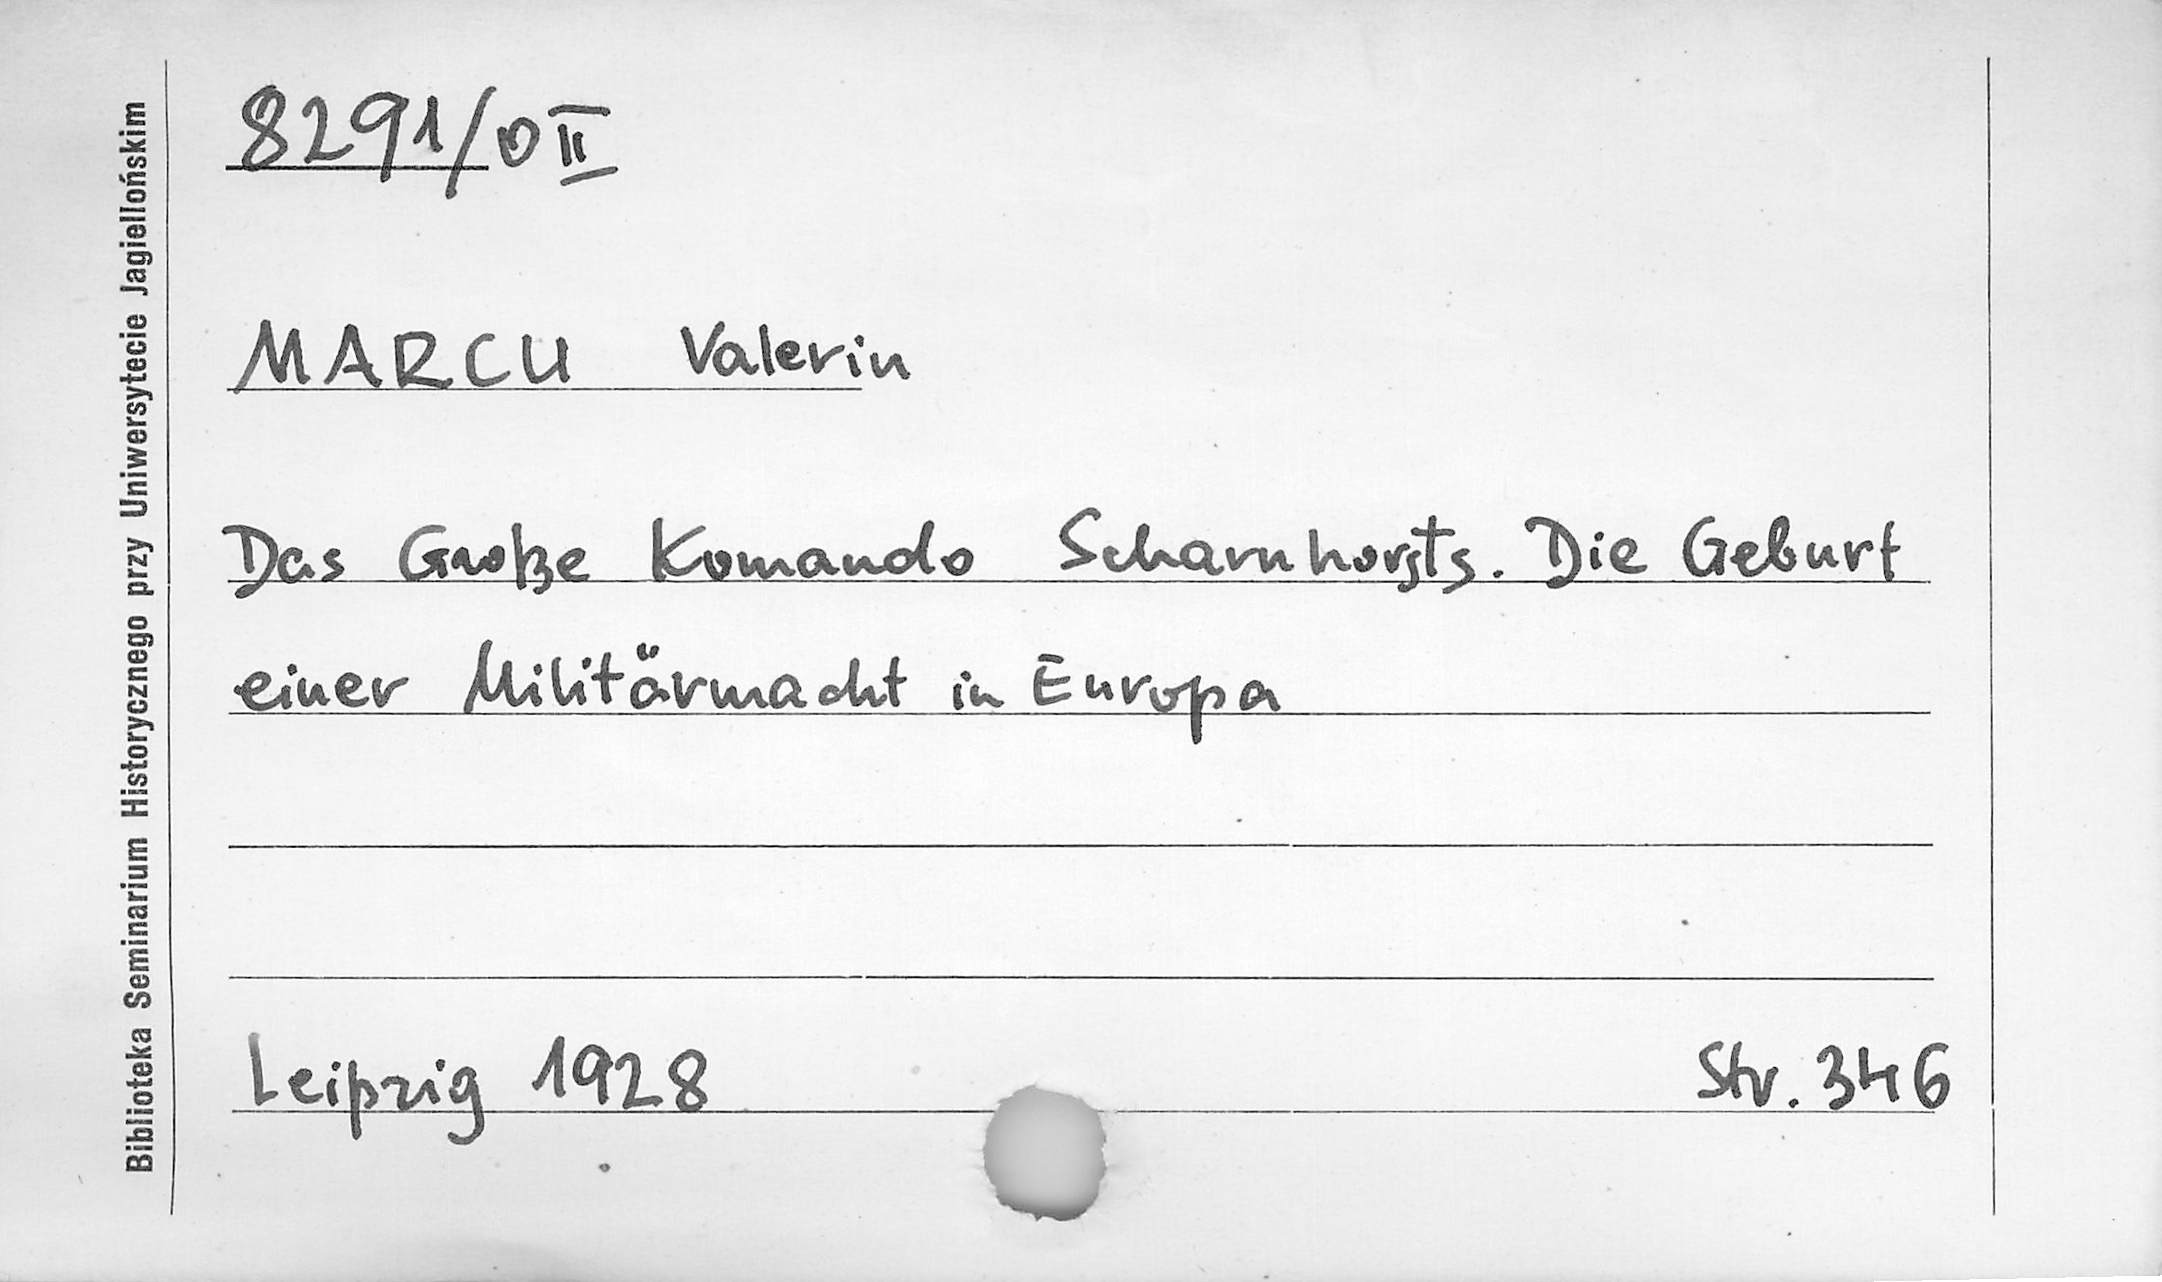 8291/OII
MARCU Valerin
Das Große Komando Scharnhorsts. Die Geburt
einer Militärmacht in Europa
Leipzig 1928
Str. 346
Biblioteka Seminarium Historycznego przy Uniwersytecie Jagiellońskim